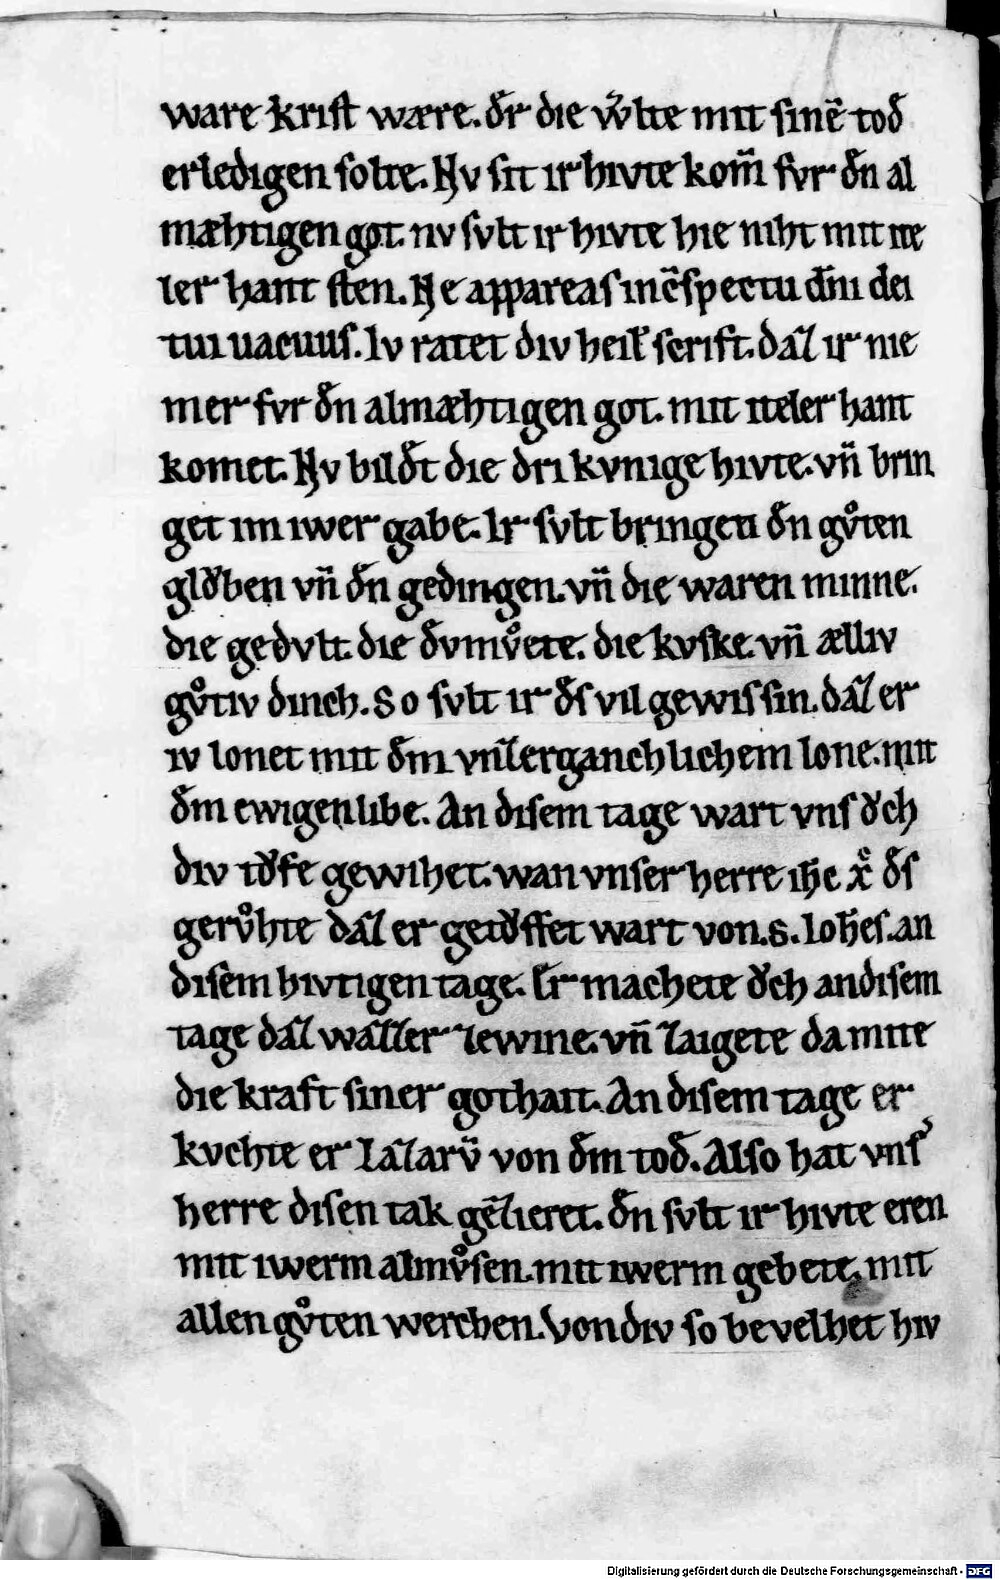 ware krist wære. đr die w̄lte mit sinē tođ
erledigen solte. Nv sit ir hivte kom̄ fvr đn al
mæhtigen got. nv svlt ir hivte hie niht mit ite
ler hant sten. Ne appareas in c̄spectu dn̄i dei
tui uacuus. Iv ratet div heil̄ scrift. daz ir nie
mer fvr đn almæhtigen got. mit iteler hant
komet. Nv bilđt die dri kvnige hivte. vn̄ brin
get im iwer gabe. Ir svlt bringen đn gvͦten
glǒben vn̄ đn gedingen. vn̄ die waren minne.
die gedvlt. die đvmvͦete. die kvske. vn̄ ælliv
gvͦtiv dinch. So svlt ir đs vil gewis sin. daz er
iv lonet mit đm vnzerganchlichem lone. mit
đm ewigen libe. An disem tage wart vns ǒch
div tǒfe gewihet. wan vnser herre ih̄c xͨ đs
gervͦhte daz er getǒffet wart von .s. Ioh̄es. an
disem hivtigen tage. Er machete ǒch an disem
tage daz wazzer zewine. vn̄ zaigete da mite
die kraft siner gothait. An disem tage er
kvchte er Lazarv̄ von đm tođ. Also hat vns᾿
herre disen tak gēzieret. đn svlt ir hivte eren
mit iwerm almvͦsen. mit iwerm gebete. mit
allen gvͦten werchen. Von div so bevelhet hiv
Digitalisierung gefördert durch die Deutsche Forschungsgemeinschaft - DFG